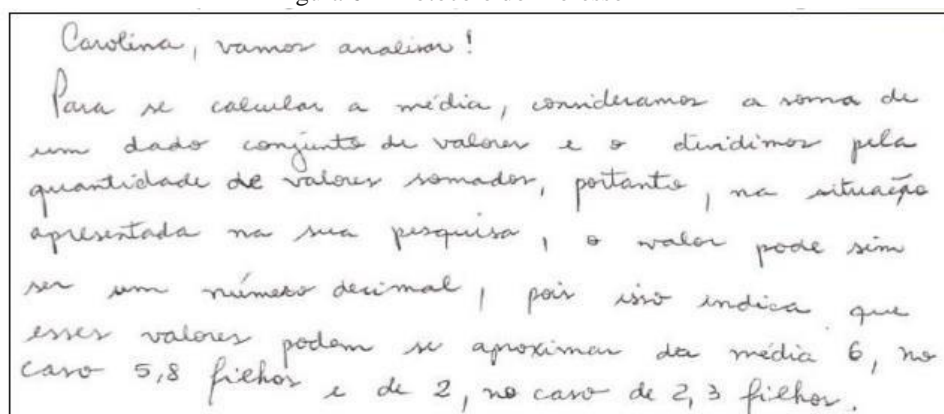 Carolina, vamos analisar!
Para se calcular a média, consideramos a soma de
um dado conjunto de valores e o dividimos pela
quantidade de valores somados, portanto, na situação
apresentada na sua pesquisa, o valor pode sim
ser um número decimal, pois isso indica que
esses valores podem se aproximar da média 6, no
caso 5,8 filhos e de 2, no caso de 2,3 filhos.